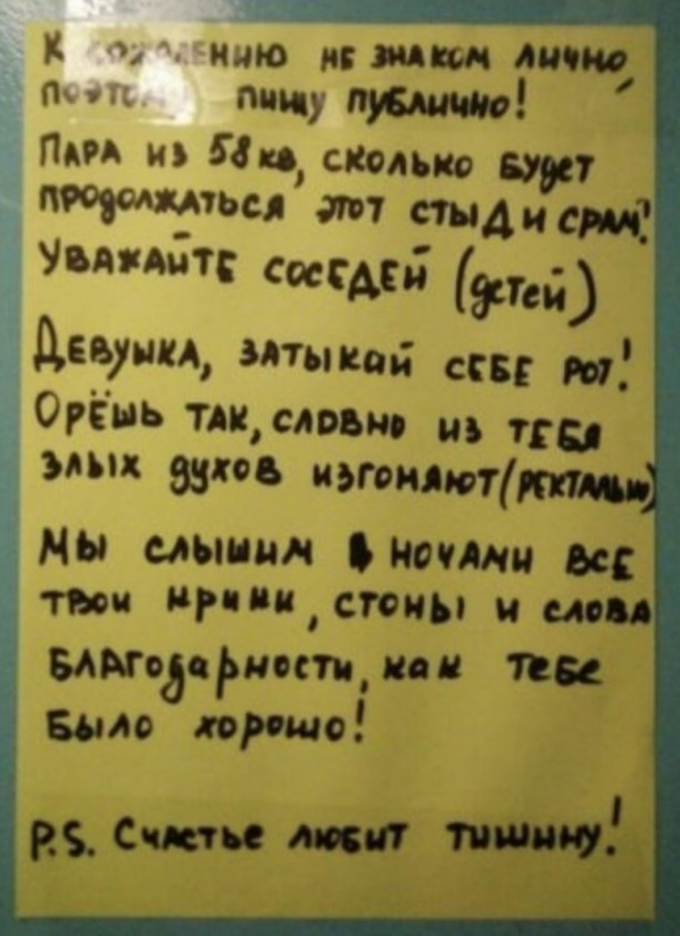 К сожалению не знаком лично,
поэтому пишу публично!
Пара из 58 кв, сколько будет
продолжаться этот стыд и срам?!
Уважайте соседей (детей)
Девушка, затыкай себе рот!
Орёшь так, словно из тебя
злых духов изгоняют (ректально)
Мы слышим ночами все
твои крики, стоны и слова
благодарности, как тебе
было хорошо!
P.S. Счастье любит тишину!